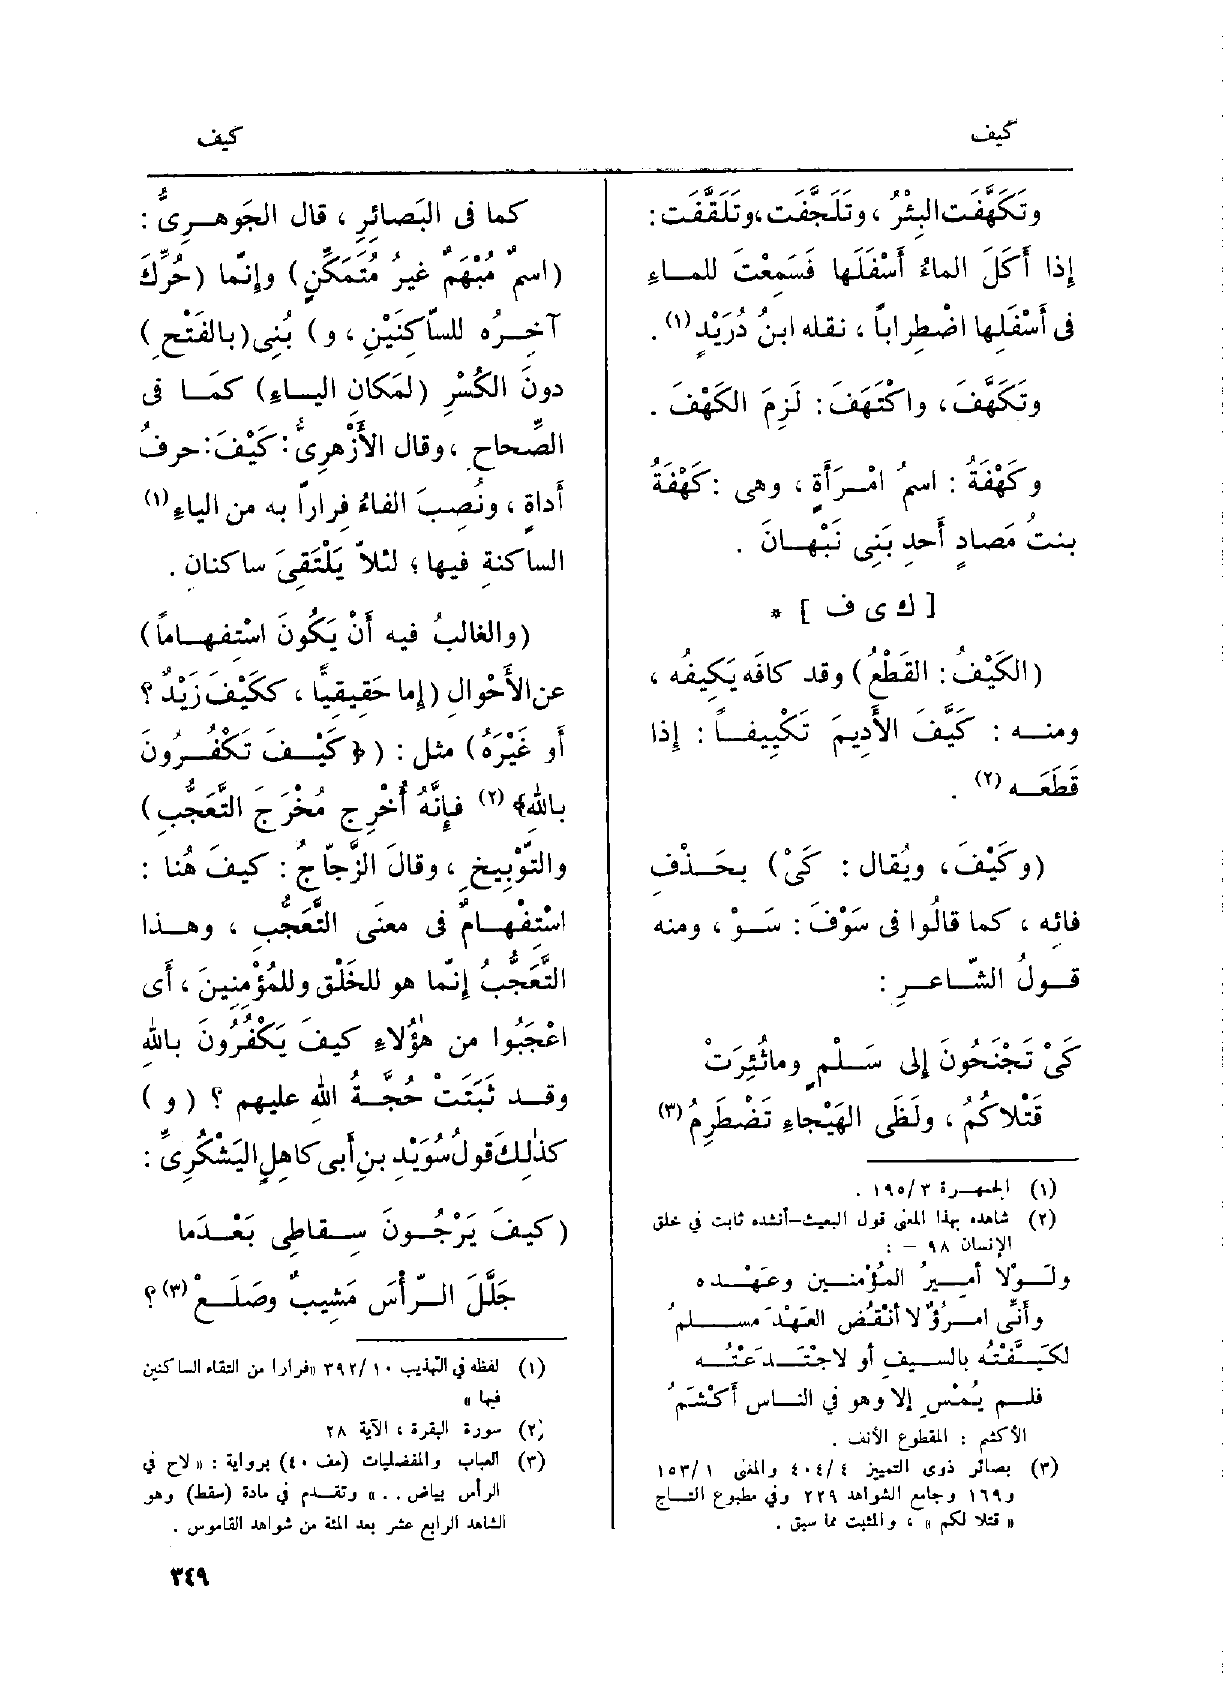 كيف
كيف
وتَكَهَّفَت البِئْرُ ، وتَلَجَّفَت ، وتَلَقَّفَت :
إذا أَكَلَ الماءُ أَسْفَلَها فَسَمِعْتَ للمــاءِ
فى أَسْفَلِها اضْطِراباً ، نقله ابنُ دُرَيْدٍ (١) .
وتَكَهَّفَ ، واكْتَهَفَ : لَزِمَ الكَهْفَ .
وكَهْفَةُ : اسمُ امْـرَأَةٍ ، وهى : كَهْفَةُ
بنتُ مَصادٍ أحدِ بَنِى نَبْهـانَ .
[ ك ى ف ] *
(الكَيْفُ : القَطْعُ) وقد كافَه يَكِيفُه ،
ومنــه : كَيَّفَ الأَدِيمَ تَكْيِيفــاً : إذا
قَطَعَــه (٢) .
(وكَيْفَ ، ويُقال : كَىْ) بحَــذْفِ
فائِه ، كما قالُوا فى سَوْفَ : سَــوْ ، ومنه
قــولُ الشّــاعرِ :
كَىْ تَجْنَحُونَ إلى سَــلْمٍ وماثُئِرَتْ
قَتْلاكُمُ ، ولَظَى الهَيْجاءِ تَضْطَرِمُ (٣)
(١) الجمهــرة ٣/ ١٩٥ .
(٢) شاهده بهذا المعنى قول البعيث–أنشده ثابت في خلق
الإنسان ٩٨ – :
ولَــوْلا أَمــيرُ المُؤْمنــين وعَهْــده
وأَنِّى امــرُؤٌ لا أَنْقُضُ العَهْدَ مســلمُ
لكَيَّفْتُه بالسيفِ أو لاجْتَــدَعْتُــه
فلــم يُمْسِ إلا وهو في النــاس أَكْشَمُ
الأكثم : المقطوع الأنف .
(٣) بصائر ذوى التمييز ٤/ ٤٠٤ والمغنى ١/ ١٥٣
و١٦٩ وجامع الشواهد ٢٢٩ وفي مطبوع التــاج
« قتلا لكم » ، والمثبت مما سبق .
كما فى البَصائِرِ ، قال الجَوهــرِىُّ :
(اسمٌ مُبْهَمٌ غيرُ مُتَمَكِّنٍ) وإنّما (حُرِّكَ
آخِــرُه للسّاكِنَيْنِ ، و) بُنِى (بالفَتْحِ)
دونَ الكَسْرِ (لمَكان اليــاءِ) كمَــا فى
الصِّحاحِ ، وقال الأَزْهرِىُّ : كَيْفَ : حرفُ
أَداةٍ ، ونُصِبَ الفاءُ فِراراً به من الياءِ (١)
الساكنةِ فيها ؛ لئلاّ يَلْتَقِىَ ساكنان .
(والغالبُ فيه أَنْ يَكُونَ اسْتِفهــاماً)
عن الأَحْوالِ (إما حَقِيقيًّا ، ككَيْفَ زَيْدٌ ؟
أَو غَيْرَهُ) مثل : (﴿ كَيْــفَ تَكْفُــرُونَ
باللهِ﴾ (٢) فإِنَّهُ أُخْرِج مُخْرَجَ التَّعَجُّبِ)
والتَّوْبِيخِ ، وقالَ الزَّجّاجُ : كيفَ هُنا :
اسْتِفْهــامٌ فى معنَى التَّعَجُّبِ ، وهــذا
التَّعَجُّبُ إِنّما هو للخَلْقِ وللمُؤْمِنِينَ ، أَى
اعْجَبُوا من هؤُلاءِ كيفَ يَكْفُرُونَ باللهِ
وقــد ثَبَتَتْ حُجَّــةُ اللهِ عليهم ؟ ( و )
كذلِكَ قولُ سُوَيْدِ بنِ أَبى كاهِلٍ اليَشْكُرِىِّ :
(كيفَ يَرْجُــونَ سِــقاطِى بَعْــدَما
جَلَّلَ الــرّأْسَ مَشِيبٌ وصَلَــعْ (٣) ؟
(١) لفظه في التهذيب ١٠/ ٣٩٢ «فرارا من التقاء الساكنين
فيها »
(٢) سورة البقرة ، الآية ٢٨
(٣) العباب والمفضليات (مف ٤٠) برواية : « لاح في
الرأس بياض . . » وتقــدم في مادة (سقط) وهو
الشاهد الرابع عشر بعد المئة من شواهد القاموس .
٣٤٩